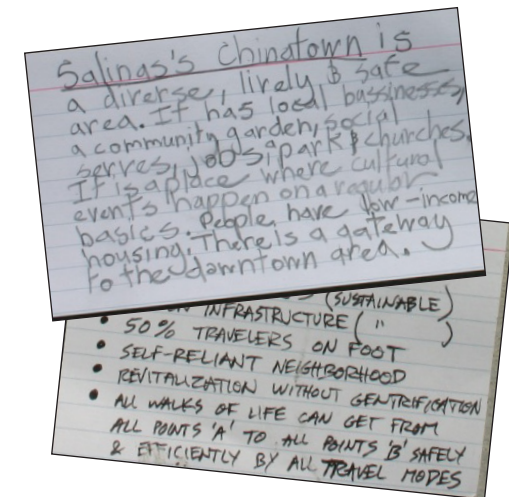 Salinas's Chinatown is
a diverse, lively & safe
area. It has local bussinesses,
a community garden, social
serves, jobs, a park & churches.
It is a place where cultural
events happen on a regular
basics. People have low-income
housing. There is a gateway
to the downtown area.
(SUSTAINABLE)
INFRASTRUCTURE ( " )
• 50% TRAVELERS ON FOOT
• SELF-RELIANT NEIGHBORHOOD
• REVITALIZATION WITHOUT GENTRIFICATION
• ALL WALKS OF LIFE CAN GET FROM
ALL POINTS 'A' TO ALL POINTS 'B' SAFELY
& EFFICIENTLY BY ALL TRAVEL MODES